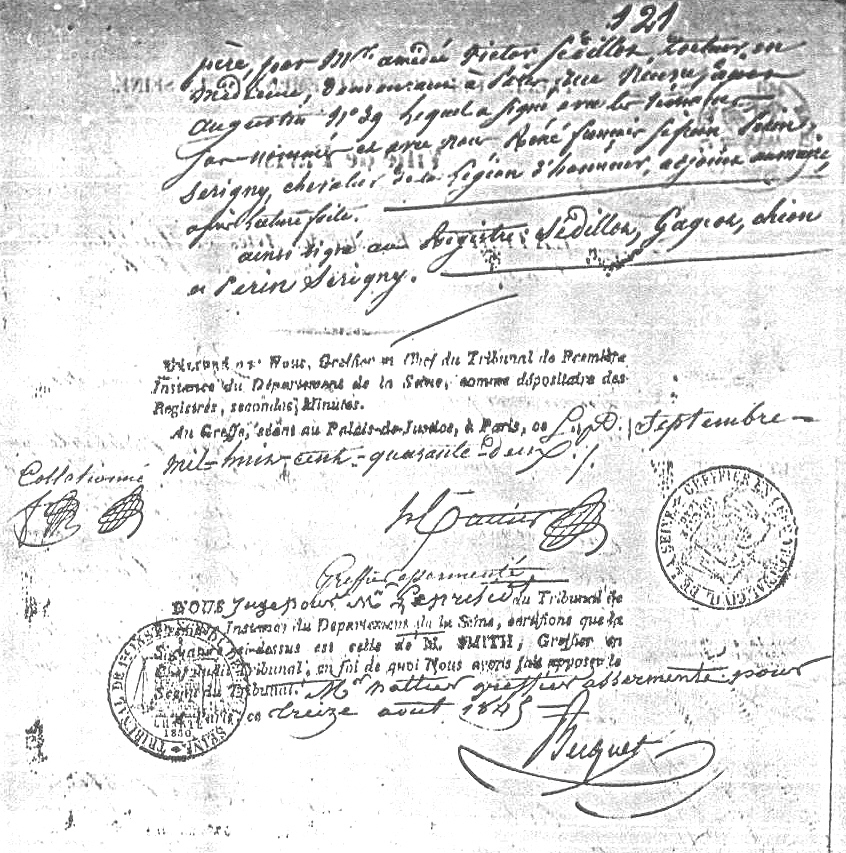 121
père, par Mr. amédée Victor Sédillot, Docteur en
Médecine, demeurant à Paris, rue Neuve Saint
Augustin No 39 lequel a signé avec les témoins
sus-nommés et avec nous René Perin
Serigny, chevalier de la Légion d'honneur, adjoint au maire,
après lecture faite.
ainsi signé au Registre: Sédillot, Gageot, chion
et Perin Serigny.
Délivré par Nous, Greffier en Chef du Tribunal de Première
Instance du Département de la Seine, comme dépositaire des
Registres, secondes Minutes.
Au Greffe, séant au Palais-de-Justice, à Paris, ce Septembre
mil-huit-cent-quarante-deux ./.
Collationné
Greffier assermenté
NOUS Juge pour Mr. le Président du Tribunal de
Instance du Département de la Seine, certifions que la
Signature ci-dessus est celle de M. SMITH, Greffier en
Chef dudit Tribunal, en foi de quoi Nous avons fait apposer le
Sceau du Tribunal. Mr. greffier assermenté pour
Paris, ce treize août 1845
GREFFIER EN CHEF TRIBUNAL CIVIL DE LA SEINE
TRIBUNAL DE 1re INSTANCE SEINE
1830